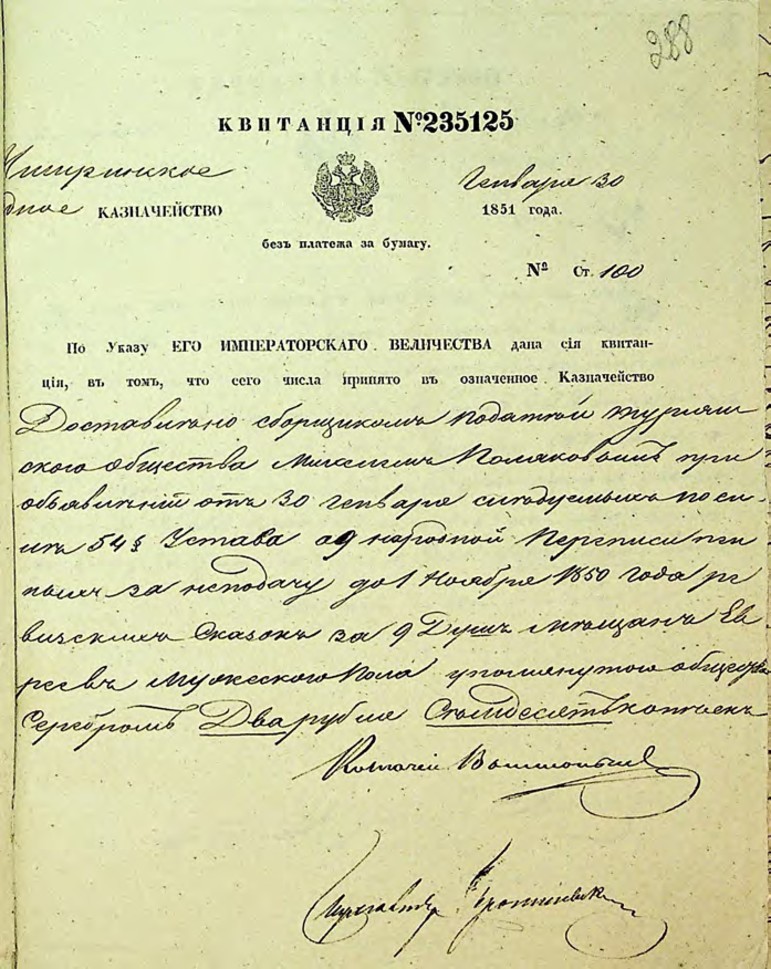 288
КВИТАНЦІЯ №235125
Чигиринское Генваря 30
дное КАЗНАЧЕЙСТВО 1851 года.
безъ платежа за бумагу.
№ Ст. 100
По Указу ЕГО ИМПЕРАТОРСКАГО ВЕЛИЧЕСТВА дана сія квитан-
ція, въ томъ, что сего числа принято въ означенное Казначейство
Доставлено сборщикомъ податей
ского общества Поляковымъ при
объявленіи отъ 30 генваря слѣдуемыхъ по си-
лѣ 54 § Устава о 9 народной Переписи пен
ныхъ за неподачу до 1 Ноября 1850 года ре
визскихъ Сказокъ за 9 Душъ мѣщанъ Ев
реевъ Мужескаго Пола упомянутого общества
Серебромъ Два рубля Семдесятъ копѣекъ
Казначей